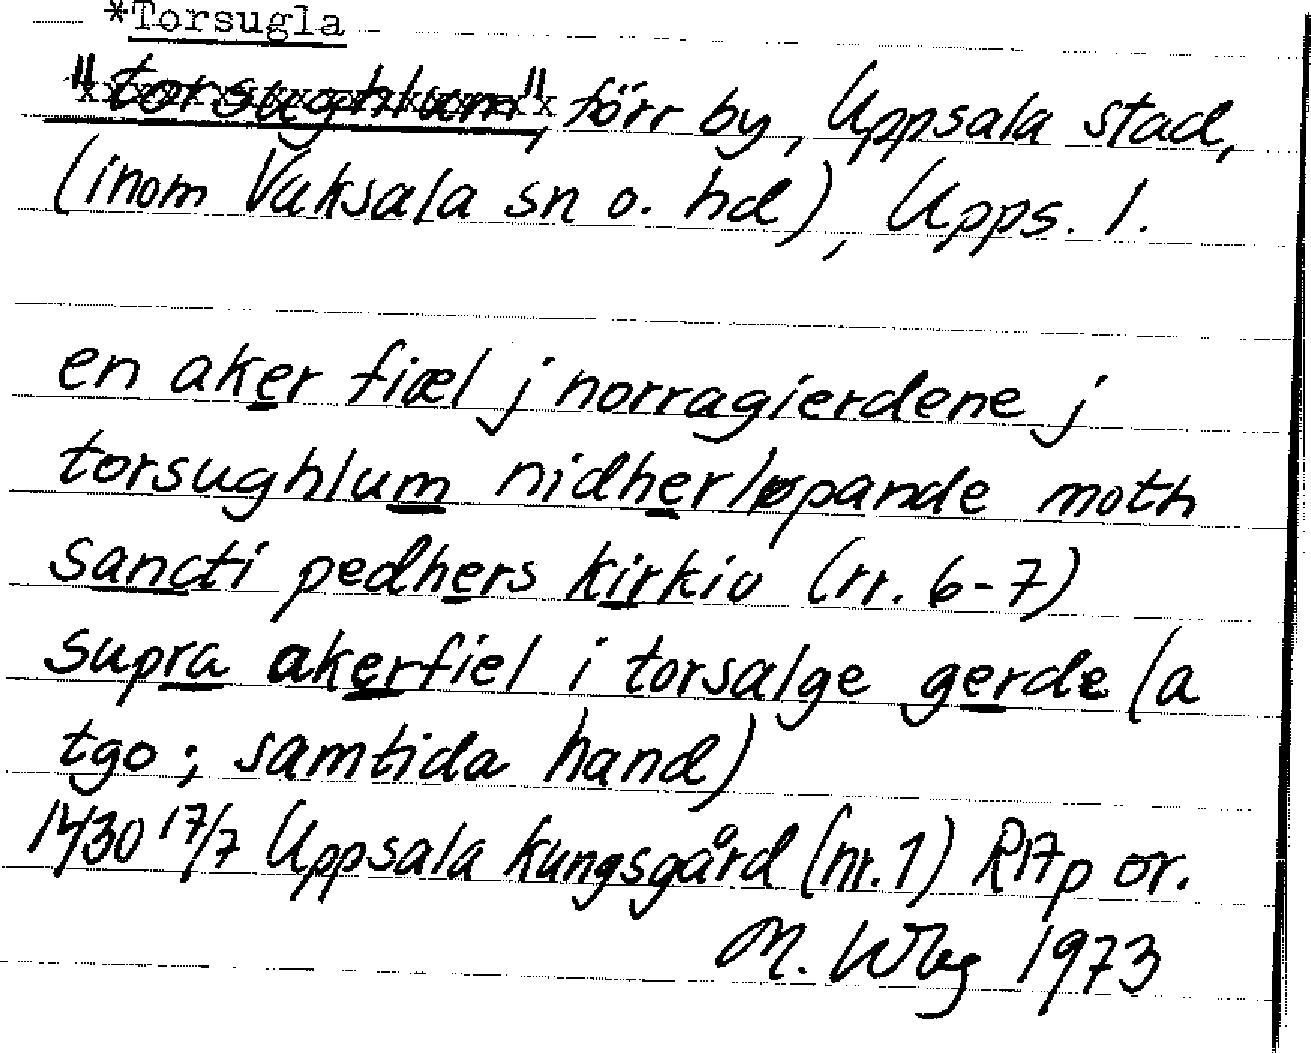 *Torsugla
"torsughlum", förr by, Uppsala stad,
(inom Vaksala sn o. hd), Upps. l.
en aker fiæl j norragierdene j
torsughlum nidherløpande moth
sancti pedhers kirkio (rr. 6-7)
supra akerfiel i torsalge gerde (a
tgo; samtida hand)
1430 17/7 Uppsala kungsgård (nr. 1) R17p or.
M. Wbg 1973